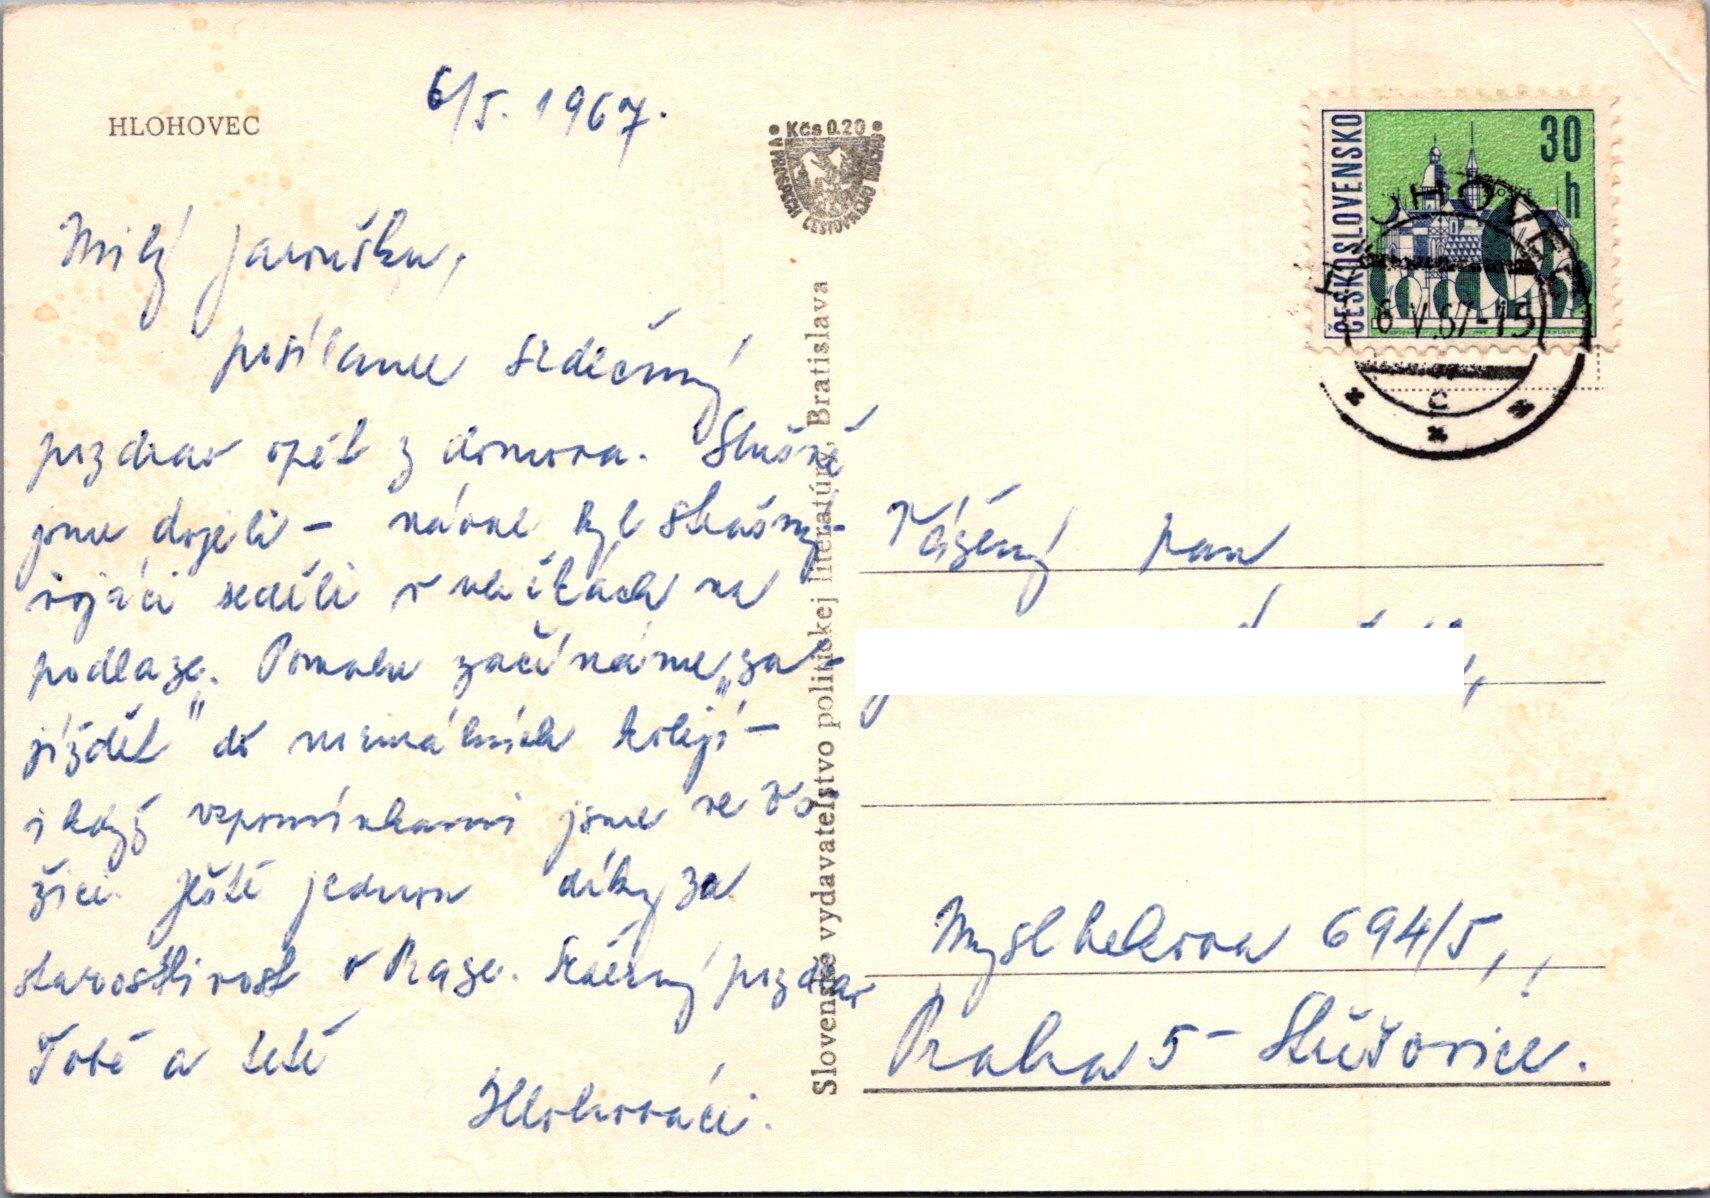 HLOHOVEC
6/5. 1967.
Milý Jaroušku,
posíláme srdečný
pozdrav opět z domova. Slušně
jsme dojeli – návrat byl strašný –
vojáci seděli v uličkách na
podlaze. Pomalu začínáme „za-
jíždět" do normálních kolejí –
i když vzpomínkami jsme ve Vo-
žici. Ještě jednou díky za
starostlivost v Praze. Srdečný pozdrav
Tobě a tetě
Hlohováci.
Kčs 0.20
Slovenské vydavateľstvo politickej literatúry, Bratislava
ČESKOSLOVENSKO
30
h
HLOHOVEC
6.V.67-15
C
Vážený pan
Myslbekova 694/5,
Praha 5 – Střešovice.